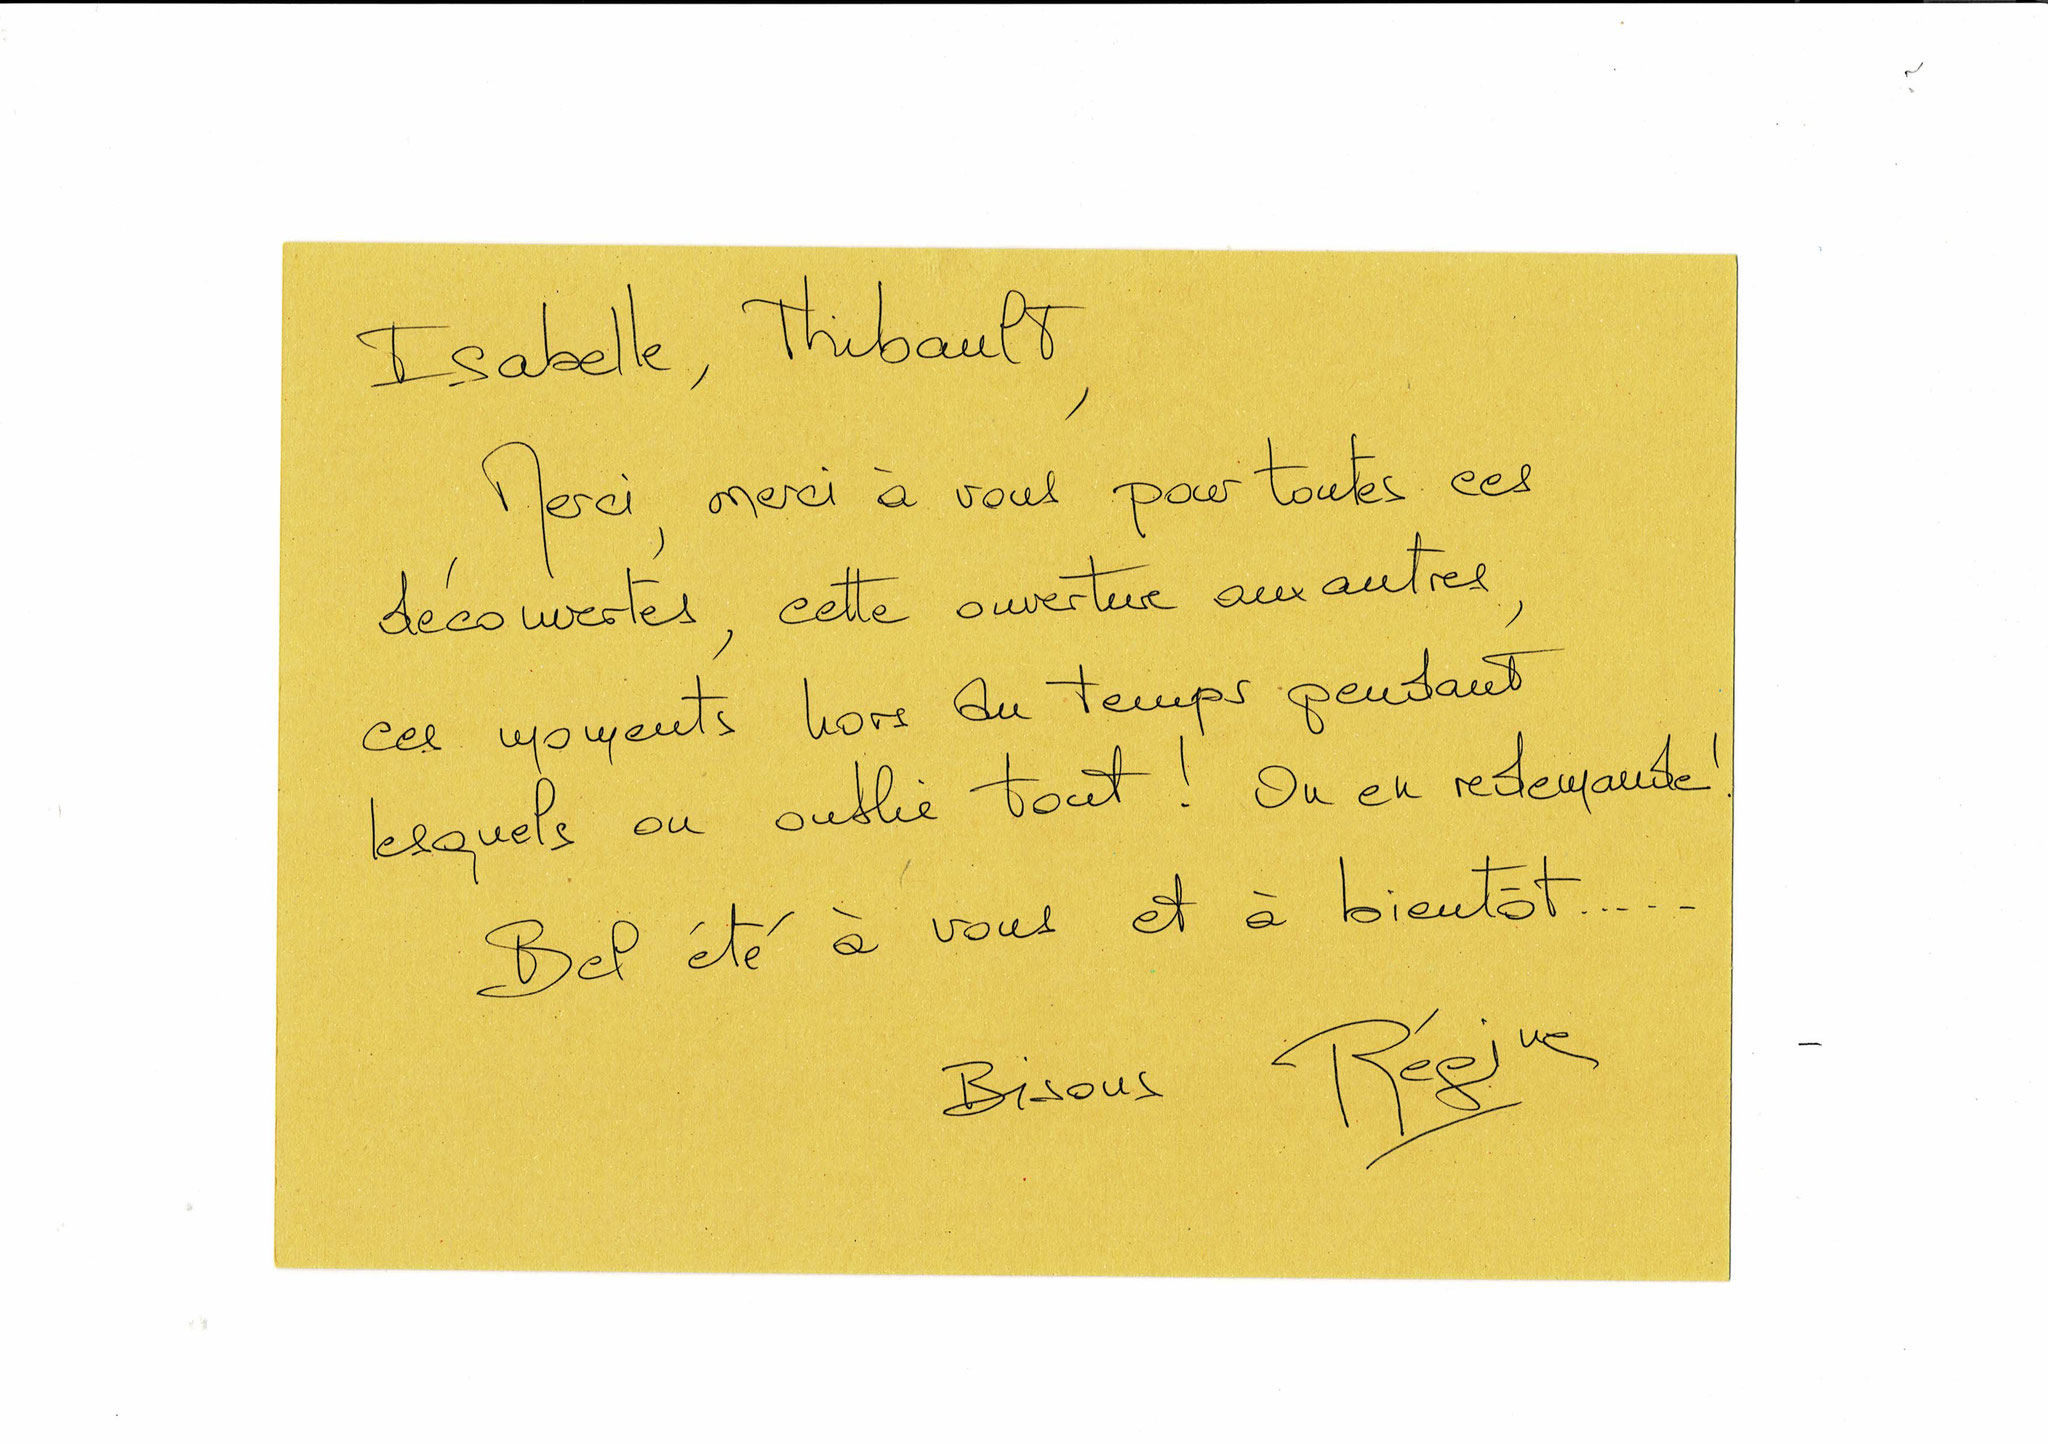 Isabelle, Thibault,
Merci, merci à vous pour toutes ces
découvertes, cette ouverture aux autres,
ces moments hors du temps pendant
lesquels on oublie tout ! On en redemande !
Bel été à vous et à bientôt.....
Bisous Régine